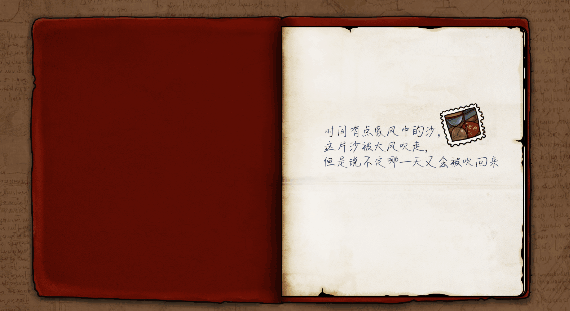 时间有点象风中的沙，
这片沙被大风吹走，
但是说不定那一天又会被吹回来